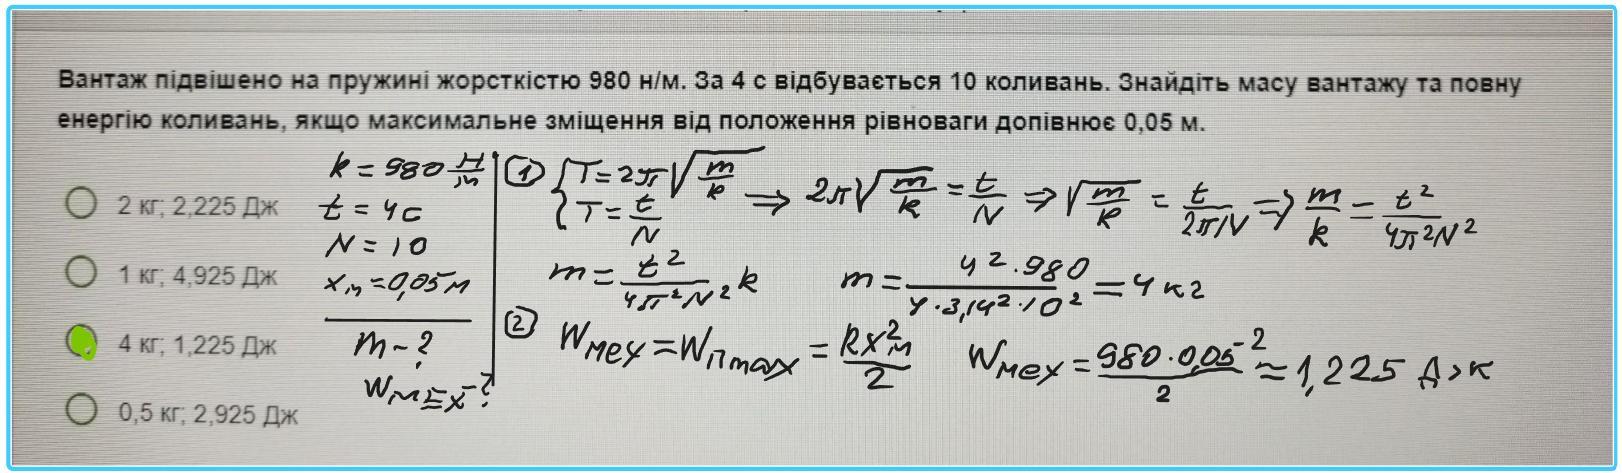 Вантаж підвішено на пружині жорсткістю 980 н/м. За 4 с відбувається 10 коливань. Знайдіть масу вантажу та повну
енергію коливань, якщо максимальне зміщення від положення рівноваги допівнює 0,05 м.
2 кг; 2,225 Дж
1 кг; 4,925 Дж
4 кг; 1,225 Дж
0,5 кг; 2,925 Дж
k = 980 Н/м
t = 4 с
N = 10
xм = 0,05 м
m - ?
Wмех - ?
1 { T = 2π√(m/k) ⇒ 2π√(m/k) = t/N ⇒ √(m/k) = t/2πN ⇒ m/k = t²/4π²N²
T = t/N
m = t²/4π²N² k m = 4²·980/4·3,14²·10² = 4 кг
2 Wмех = Wп max = kx²м/2 Wмех = 980·0,05²/2 ≈ 1,225 Дж